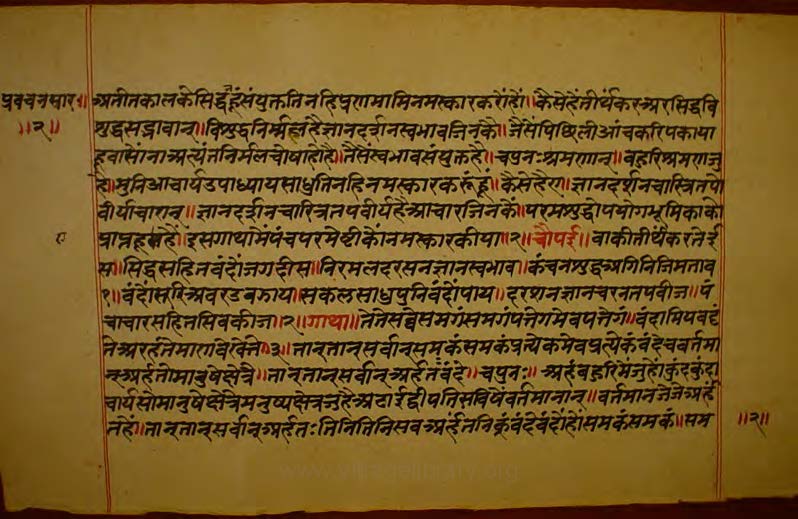 प्रवचनसार॥
॥२॥
अतीतकालकेसिद्धहूंसंयुक्ततिनहिप्रणमामिनमस्कारकरोंहों॥कैसेहैंतीर्थंकरअरसिद्धवि
शुद्धसद्भावान्॥विशुद्धनिर्मलहैज्ञानदर्शनस्वभावजिनकौ॥जैसेंपिछिलीआंचकरिपकाया
हूवासोंनाअत्यंतनिर्मलचोषाहोहै॥तैसेंस्वभावसंयुक्तहै॥चपुनःश्रमणान्॥बहुरिश्रमणजु
है॥मुनिआचार्यउपाध्यायसाधुतिनहिनमस्कारकरूंहूं॥कैसेहै॥ज्ञानदर्शनचारित्रतपो
वीर्याचारान्॥ज्ञानदर्शनचारित्रतपवीर्यहैआचारजिनकें॥परमशुद्धोपयोगभूमिकाकों
प्राप्तहूएहैं॥इसगाथामेंपंचपरमेष्टीकोंनमस्कारकीया॥२॥चौपई॥वाकीतीर्थंकरतेई
स॥सिद्धसहितवंदोंजगदीस॥निरमलदरसनज्ञानस्वभाव॥कंचनशुद्धअगिनिजिमताव
१॥वंदोंसूरिअवरउवझाय॥सकलसाधुपुनिवंदोंपाय॥दरशनज्ञानचरनतपवीज॥पं
चाचारसहितसिवकीज॥२॥गाथा॥तेतेसव्वेसमगंसमगंपत्तेगमेवपत्तेगं॥वंदामियवट्टं
तेअरहंतेमाणुसेखेत्ते॥३॥तान्तान्सर्वान्समकंसमकंप्रत्येकमेवप्रत्येकंवंदेचवर्तमा
नान्अर्हतोमानुषेक्षेत्रे॥तान्तान्सर्वान्अर्हतःवंदे॥चपुनः॥अहंबहुरिमेंजुहोंकुंदकुंदा
चार्यसोमानुषेक्षेत्रेमनुष्यक्षेत्रजुहैअढाईद्वीपतिसविषेंवर्तमानान्॥वर्तमानजेजेअर्ह
तहों॥तान्तान्सर्वान्अर्हतःतिनितिनिसबअर्हतनिकूंवंदेवंदोंहों॥समकंसमकं॥सम
॥२॥